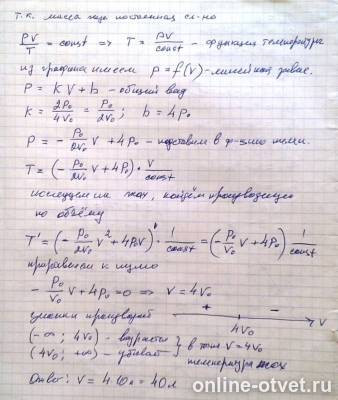 т.к. масса газа постоянная сл-но
PV/T = const => T = PV/const - функция температуры
из графика имеем P = f(V) - линейной зависим.
P = KV + b - общий вид
K = 2P₀/4V₀ = P₀/2V₀; b = 4P₀
P = - P₀/2V₀ V + 4P₀ - подставим в ф-лу темп.
T = (- P₀/2V₀ V + 4P₀) · V/const
исследуем на max, найдём производную
по объёму
T' = (- P₀/2V₀ V² + 4P₀V)' · 1/const = (- P₀/V₀ V + 4P₀) 1/const
приравняем к нулю
- P₀/V₀ V + 4P₀ = 0 => V = 4V₀
+ -
4V₀ V
значки производной
(-∞; 4V₀) - возрастает
(4V₀; +∞) - убывает } в точке V = 4V₀
температура max
Ответ: V = 4·10л = 40л
online-otvet.ru